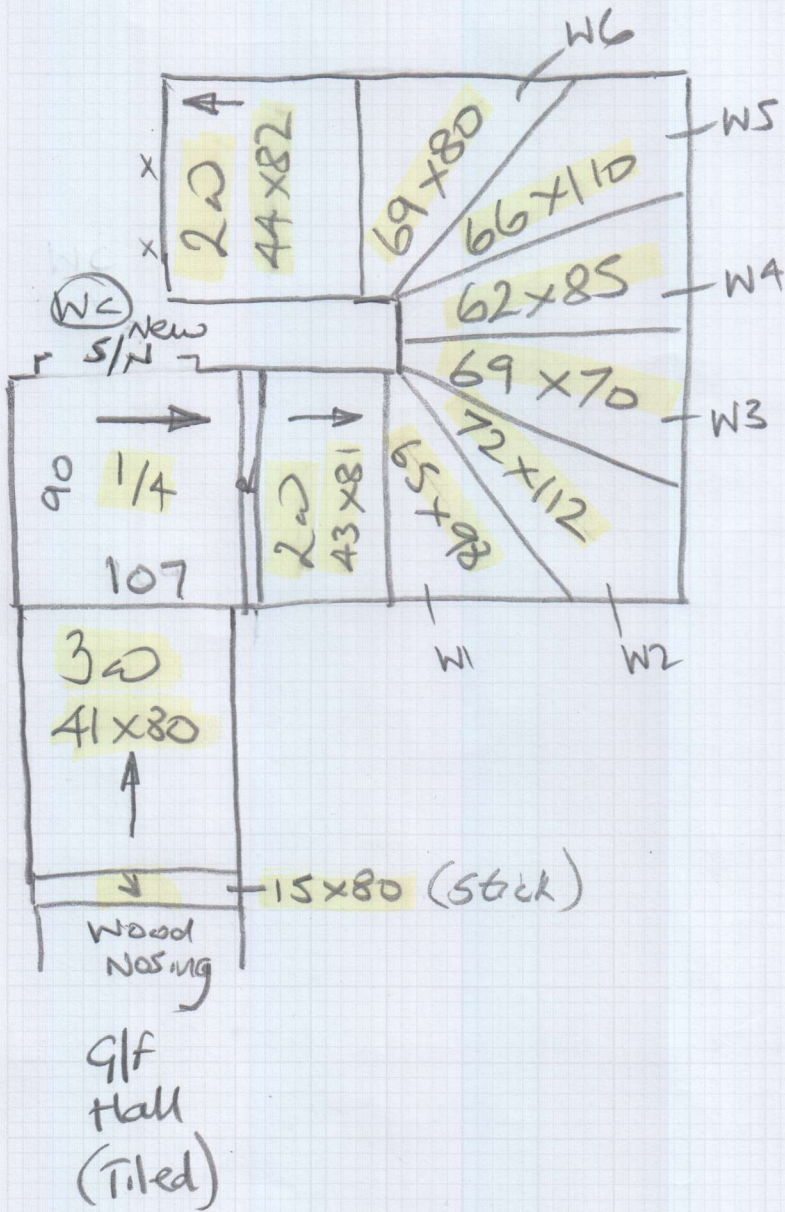 W6
W5
W4
W3
W2
W1
69 x 80
66 x 110
62 x 85
69 x 70
72 x 112
65 x 98
44 x 82
x
x
WC
New
S/N
90
1/4
107
43 x 81
41 x 80
15 x 80 (Stick)
Wood
Nosing
G/f
Hall
(Tiled)